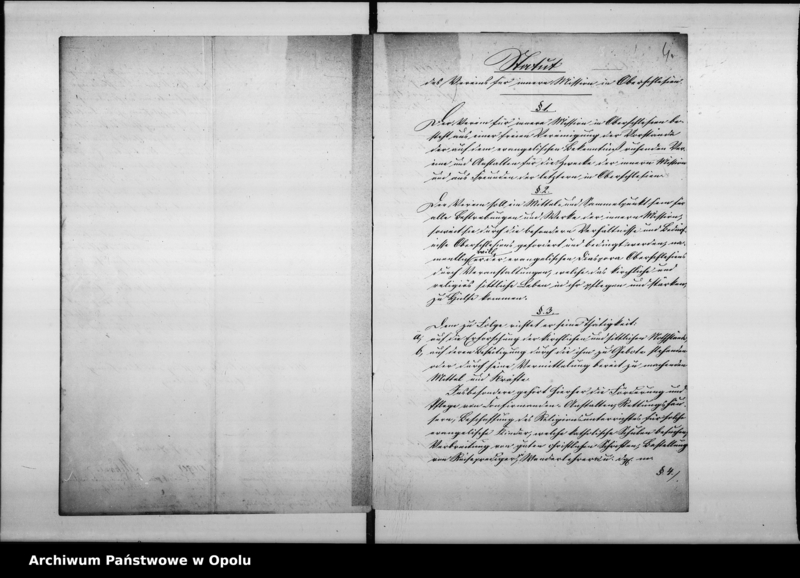 4.
Statut
des Vereins für innere Mission in Oberschlesien
§ 1.
Der Verein für innere Mission in Oberschlesien be-
steht aus einer freien Vereinigung der Vorstände
der auf dem evangelischen Bekenntniß ruhenden Ver-
eine und Anstalten für die Zwecke der innern Mission
und aus Freunden der letztern in Oberschlesien.
§ 2.
Der Verein soll ein Mittel- und Sammelpunkt sein für
alle Bestrebungen und Werke der innern Mission,
soweit sie durch die besondern Verhältnisse und Bedürf-
nisse Oberschlesiens gefordert und bedingt werden, na-
mentlich will er der evangelischen Diaspora Oberschlesiens
durch Veranstaltungen, welche das kirchliche und
religiös sittliche Leben in ihr pflegen und stärken,
zu Hülfe kommen.
§ 3.
Dem zu Folge richtet er seine Thätigkeit:
a, auf die Erforschung der kirchlichen und sittlichen Nothstände,
b, auf deren Beseitigung durch die ihm zu Gebote stehenden
oder durch seine Vermittelung bereit zu machenden
Mittel und Kräfte.
Insbesondere gehört hierher die Förderung und
Pflege von Confirmanden-Anstalten, Rettungshäu-
sern, Beschaffung des Religionsunterrichtes für solche
evangelische Kinder, welche katholische Schulen besuchen,
Verbreitung von guten christlichen Schriften, Bestellung
von Reisepredigern, Wanderlehrern u. dgl. m.
§ 4/.
Archiwum Państwowe w Opolu